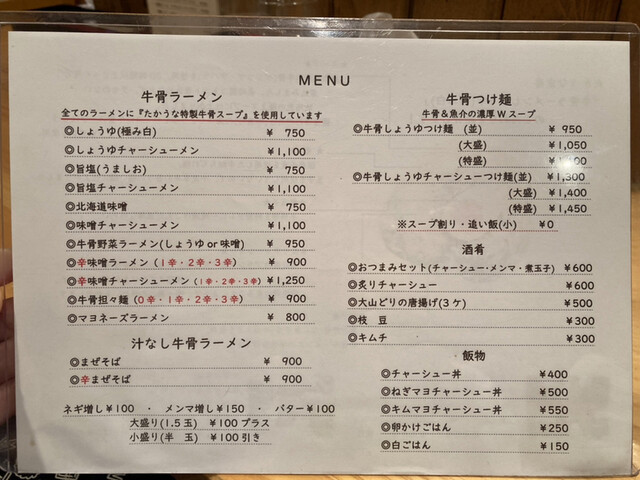 MENU
牛骨ラーメン
全てのラーメンに『たかうな特製牛骨スープ』を使用しています
◎しょうゆ(極み白) ￥ 750
◎しょうゆチャーシューメン ￥1,100
◎旨塩(うましお) ￥ 750
◎旨塩チャーシューメン ￥1,100
◎北海道味噌 ￥ 750
◎味噌チャーシューメン ￥1,100
◎牛骨野菜ラーメン(しょうゆor味噌) ￥ 950
◎辛味噌ラーメン(1辛・2辛・3辛) ￥ 900
◎辛味噌チャーシューメン(1辛・2辛・3辛) ￥1,250
◎牛骨担々麺(0辛・1辛・2辛・3辛) ￥ 900
◎マヨネーズラーメン ￥ 800
汁なし牛骨ラーメン
◎まぜそば ￥ 900
◎辛まぜそば ￥ 900
ネギ増し￥100 ・ メンマ増し￥150 ・ バター￥100
大盛り(1.5玉) ￥100プラス
小盛り(半 玉) ￥100引き
牛骨つけ麺
牛骨＆魚介の濃厚Wスープ
◎牛骨しょうゆつけ麺 (並) ￥ 950
(大盛) ￥1,050
(特盛)
◎牛骨しょうゆチャーシューつけ麺(並) ￥1,300
(大盛) ￥1,400
(特盛) ￥1,450
※スープ割り・追い飯(小) ￥0
酒肴
◎おつまみセット(チャーシュー・メンマ・煮玉子) ￥600
◎炙りチャーシュー ￥600
◎大山どりの唐揚げ(3ケ) ￥500
◎枝 豆 ￥300
◎キムチ ￥300
飯物
◎チャーシュー丼 ￥400
◎ねぎマヨチャーシュー丼 ￥500
◎キムマヨチャーシュー丼 ￥550
◎卵かけごはん ￥250
◎白ごはん ￥150